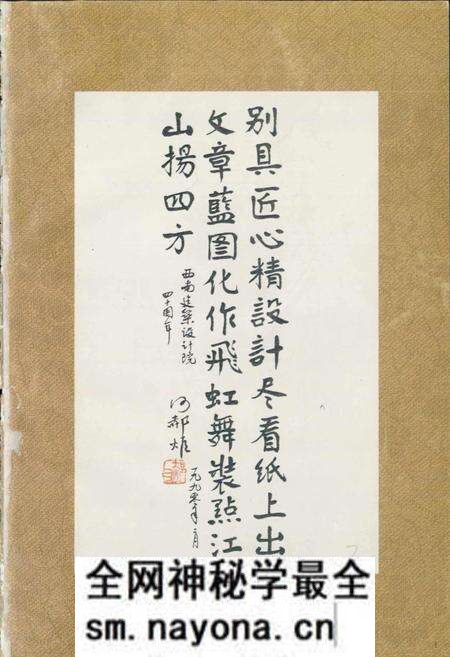 别具匠心精設計尽看紙上出
文章藍图化作飛虹舞装點江
山揚四方
西南建築设计院
四十周年
何郝炬
一九九零年
全网神秘学最全
sm.nayona.cn